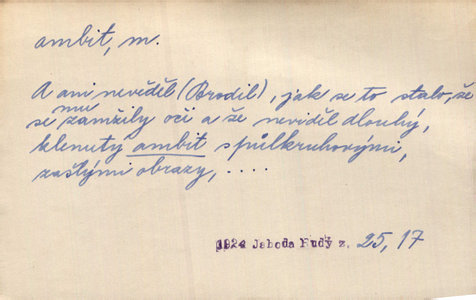 ambit, m.
A ani nevěděl (Brodil), jak se to stalo, že
se mu zamžily oči a že neviděl dlouhý,
klenutý ambit s půlkruhovými,
zašlými obrazy, ....
1924 Jahoda Rudý z. 25, 17